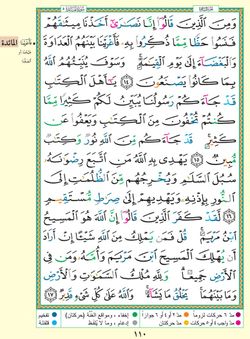 وَمِنَ ٱلَّذِينَ قَالُوٓاْ إِنَّا نَصَٰرَىٰٓ أَخَذْنَا مِيثَٰقَهُمْ
فَنَسُواْ حَظًّا مِّمَّا ذُكِّرُواْ بِهِۦ فَأَغْرَيْنَا بَيْنَهُمُ ٱلْعَدَاوَةَ
وَٱلْبَغْضَآءَ إِلَىٰ يَوْمِ ٱلْقِيَٰمَةِ ۚ وَسَوْفَ يُنَبِّئُهُمُ ٱللَّهُ
بِمَا كَانُواْ يَصْنَعُونَ ١٤ يَٰٓأَهْلَ ٱلْكِتَٰبِ
قَدْ جَآءَكُمْ رَسُولُنَا يُبَيِّنُ لَكُمْ كَثِيرًا مِّمَّا
كُنتُمْ تُخْفُونَ مِنَ ٱلْكِتَٰبِ وَيَعْفُواْ عَن
كَثِيرٍ ۚ قَدْ جَآءَكُم مِّنَ ٱللَّهِ نُورٌ وَكِتَٰبٌ
مُّبِينٌ ١٥ يَهْدِى بِهِ ٱللَّهُ مَنِ ٱتَّبَعَ رِضْوَٰنَهُۥ
سُبُلَ ٱلسَّلَٰمِ وَيُخْرِجُهُم مِّنَ ٱلظُّلُمَٰتِ إِلَى
ٱلنُّورِ بِإِذْنِهِۦ وَيَهْدِيهِمْ إِلَىٰ صِرَٰطٍ مُّسْتَقِيمٍ
١٦ لَّقَدْ كَفَرَ ٱلَّذِينَ قَالُوٓاْ إِنَّ ٱللَّهَ هُوَ ٱلْمَسِيحُ
ٱبْنُ مَرْيَمَ ۚ قُلْ فَمَن يَمْلِكُ مِنَ ٱللَّهِ شَيْـًٔا إِنْ أَرَادَ
أَن يُهْلِكَ ٱلْمَسِيحَ ٱبْنَ مَرْيَمَ وَأُمَّهُۥ وَمَن فِى
ٱلْأَرْضِ جَمِيعًا ۗ وَلِلَّهِ مُلْكُ ٱلسَّمَٰوَٰتِ وَٱلْأَرْضِ
وَمَا بَيْنَهُمَا ۚ يَخْلُقُ مَا يَشَآءُ ۚ وَٱللَّهُ عَلَىٰ كُلِّ شَىْءٍ قَدِيرٌ ١٧
١١٠